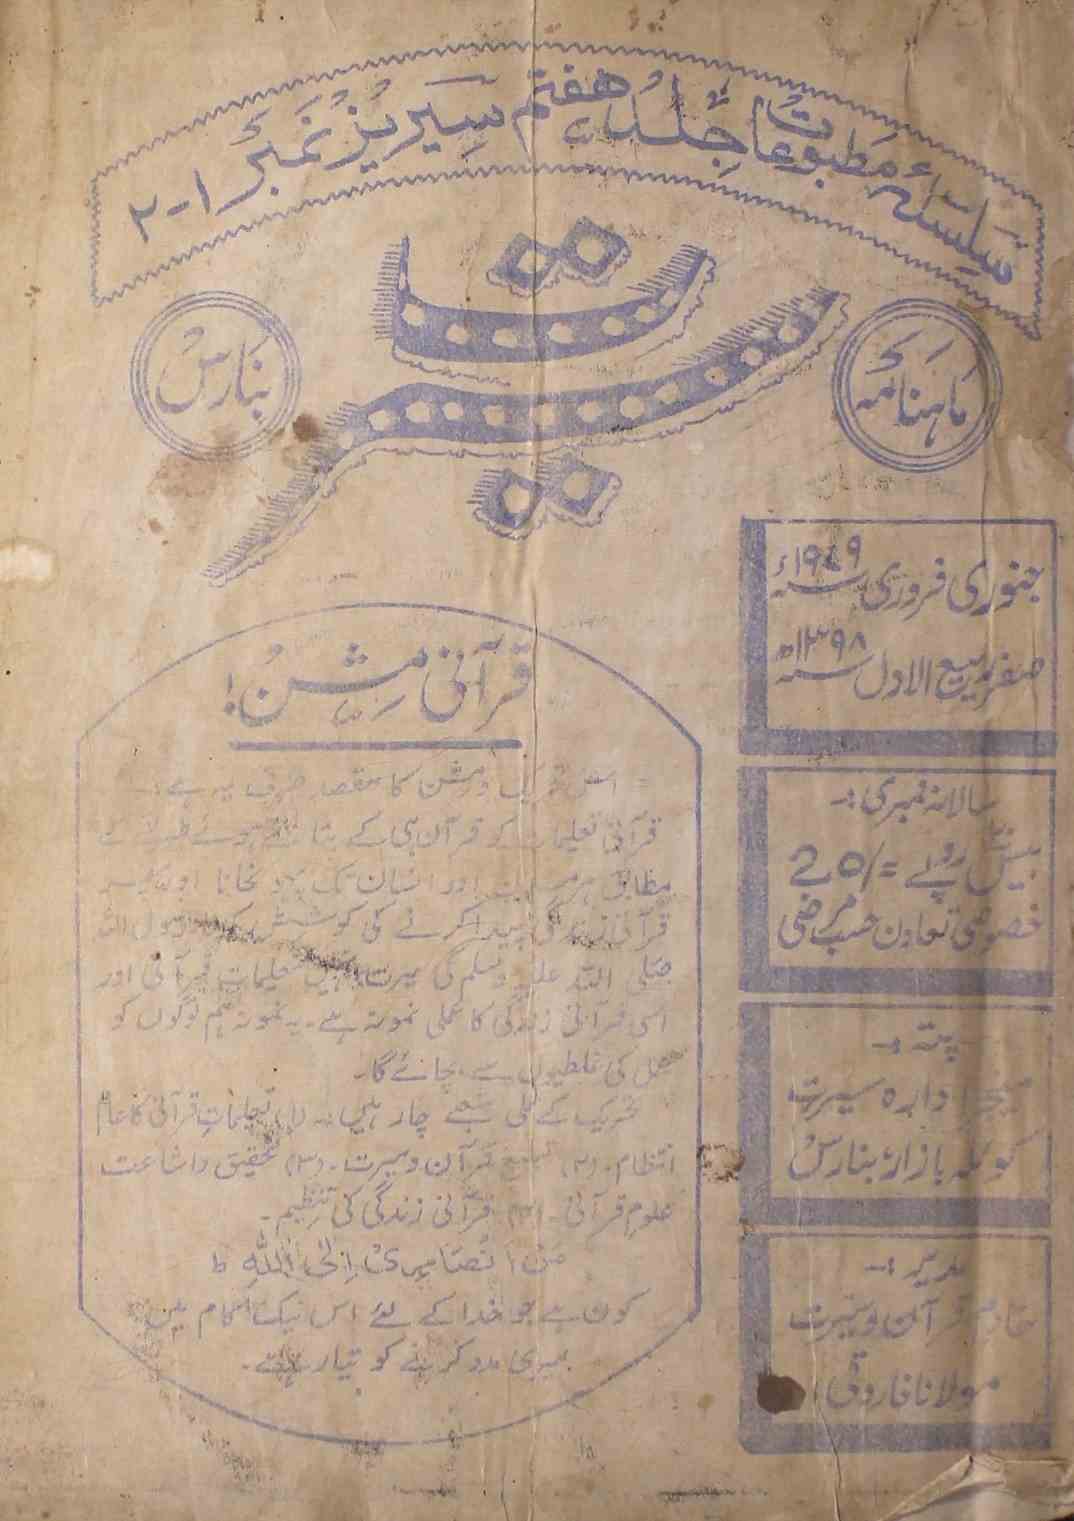 سلسلۂ مطبوعات جلد ہفتم سیریز نمبر ۱-۲
ماہنامہ
سیرت
بنارس
جنوری فروری سنہ ۱۹۷۹ء
صفر ربیع الاول سنہ ۱۳۹۸ھ
سالانہ ممبری :-
بیس روپے =/20
خصوصی تعاون حسب مرضی
پتہ :-
ادارہ سیرت
کوئلہ بازار بنارس
مدیر :-
خادم قرآن و سیرت
مولانا فاروقی
قرآنی مشن!
اس تحریک و مشن کا مقصد صرف یہ ہے :-
قرآنی تعلیمات کو قرآن ہی کے بتائے ہوئے طریقے کے
مطابق ہر اور انسان تک پہونچانا اور
قرآنی زندگی پیدا کرنے کی کوشش رسول اللہ
صلی اللہ علیہ وسلم کی سیرت تعلیمات قرآنی اور
اسی قرآنی زندگی کا عملی نمونہ ہے۔ یہ نمونہ ہم لوگوں کو
عمل کی غلطیوں سے بچائے گا۔
تحریک کے عملی شعبے چار ہیں۔ (۱) تعلیمات قرآنی کا عام
انتظام۔ (۲) تبلیغ قرآن و سیرت۔ (۳) تحقیق و اشاعت
علوم قرآنی۔ (۴) قرآنی زندگی کی تنظیم۔
مَن اَنصَارِیْ اِلَی اللّٰہِ ط
کون ہے جو خدا کے لئے اس نیک کام میں
میری مدد کرنے کو تیار ہے۔